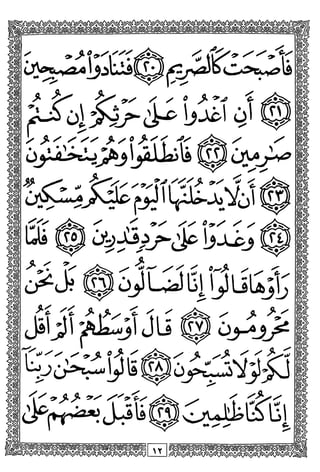 فَأَصْبَحَتْ كَٱلصَّرِيمِ ٢٠ فَتَنَادَوْا۟ مُصْبِحِينَ
٢١ أَنِ ٱغْدُوا۟ عَلَىٰ حَرْثِكُمْ إِن كُنتُمْ
صَٰرِمِينَ ٢٢ فَٱنطَلَقُوا۟ وَهُمْ يَتَخَٰفَتُونَ
٢٣ أَن لَّا يَدْخُلَنَّهَا ٱلْيَوْمَ عَلَيْكُم مِّسْكِينٌ
٢٤ وَغَدَوْا۟ عَلَىٰ حَرْدٍ قَٰدِرِينَ ٢٥ فَلَمَّا
رَأَوْهَا قَالُوٓا۟ إِنَّا لَضَآلُّونَ ٢٦ بَلْ نَحْنُ
مَحْرُومُونَ ٢٧ قَالَ أَوْسَطُهُمْ أَلَمْ أَقُل
لَّكُمْ لَوْلَا تُسَبِّحُونَ ٢٨ قَالُوا۟ سُبْحَٰنَ رَبِّنَآ
إِنَّا كُنَّا ظَٰلِمِينَ ٢٩ فَأَقْبَلَ بَعْضُهُمْ عَلَىٰ
١٢